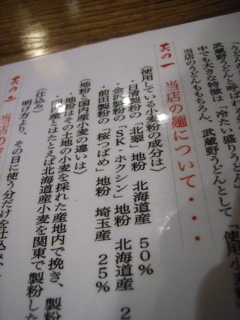 其の一 当店の麺について・・・
武蔵野うどんと呼ばれ
当店のうどんももちろん、武蔵野うどんとして
中でも大きな特徴は「冷たい盛りうどん
(使用している小麦粉の成分は)
・日清製粉の「北琴」地粉 北海道産 50%
・金沢製粉の「SK・ホクシン」地粉 北海道産 2
・前田製粉の「桜つばめ」地粉 埼玉産 25%
(地粉と国内産小麦の違いは)
地粉はその土地の小麦を採れた産地内で挽き、製粉
国内産とはたとえば北海道産小麦を関東で製粉した
(仕込み)
明け方より、その日に使う分だけを仕込みます
其の二 当店の